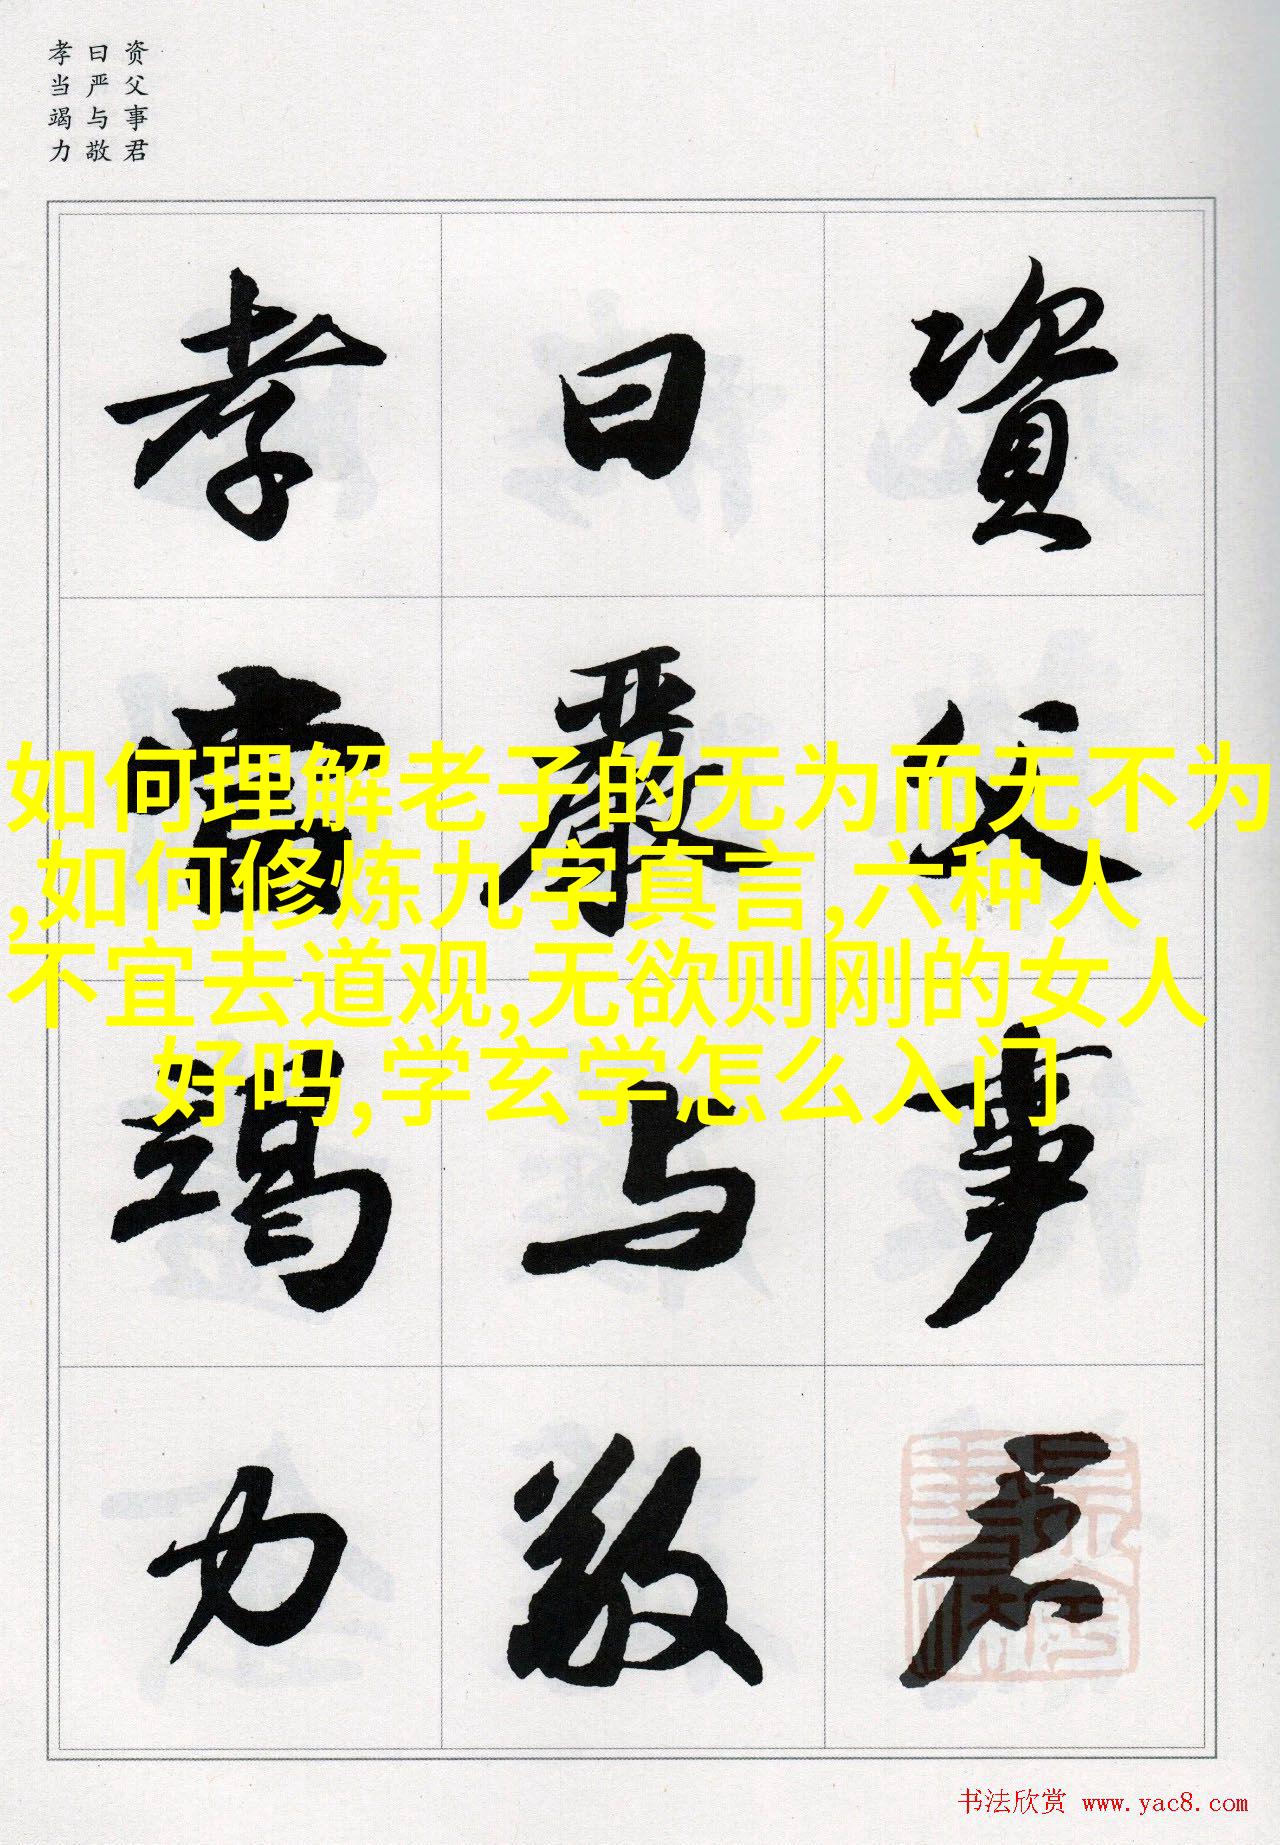 资父事君
曰严与敬
孝当竭力
資父事君
曰嚴与敬
孝當竭力
如何理解老子的无为而无不为
,如何修炼九字真言,六种人
不宜去道观,无欲则刚的女人
好吗,学玄学怎么入门
书法欣赏 www.yac8.com